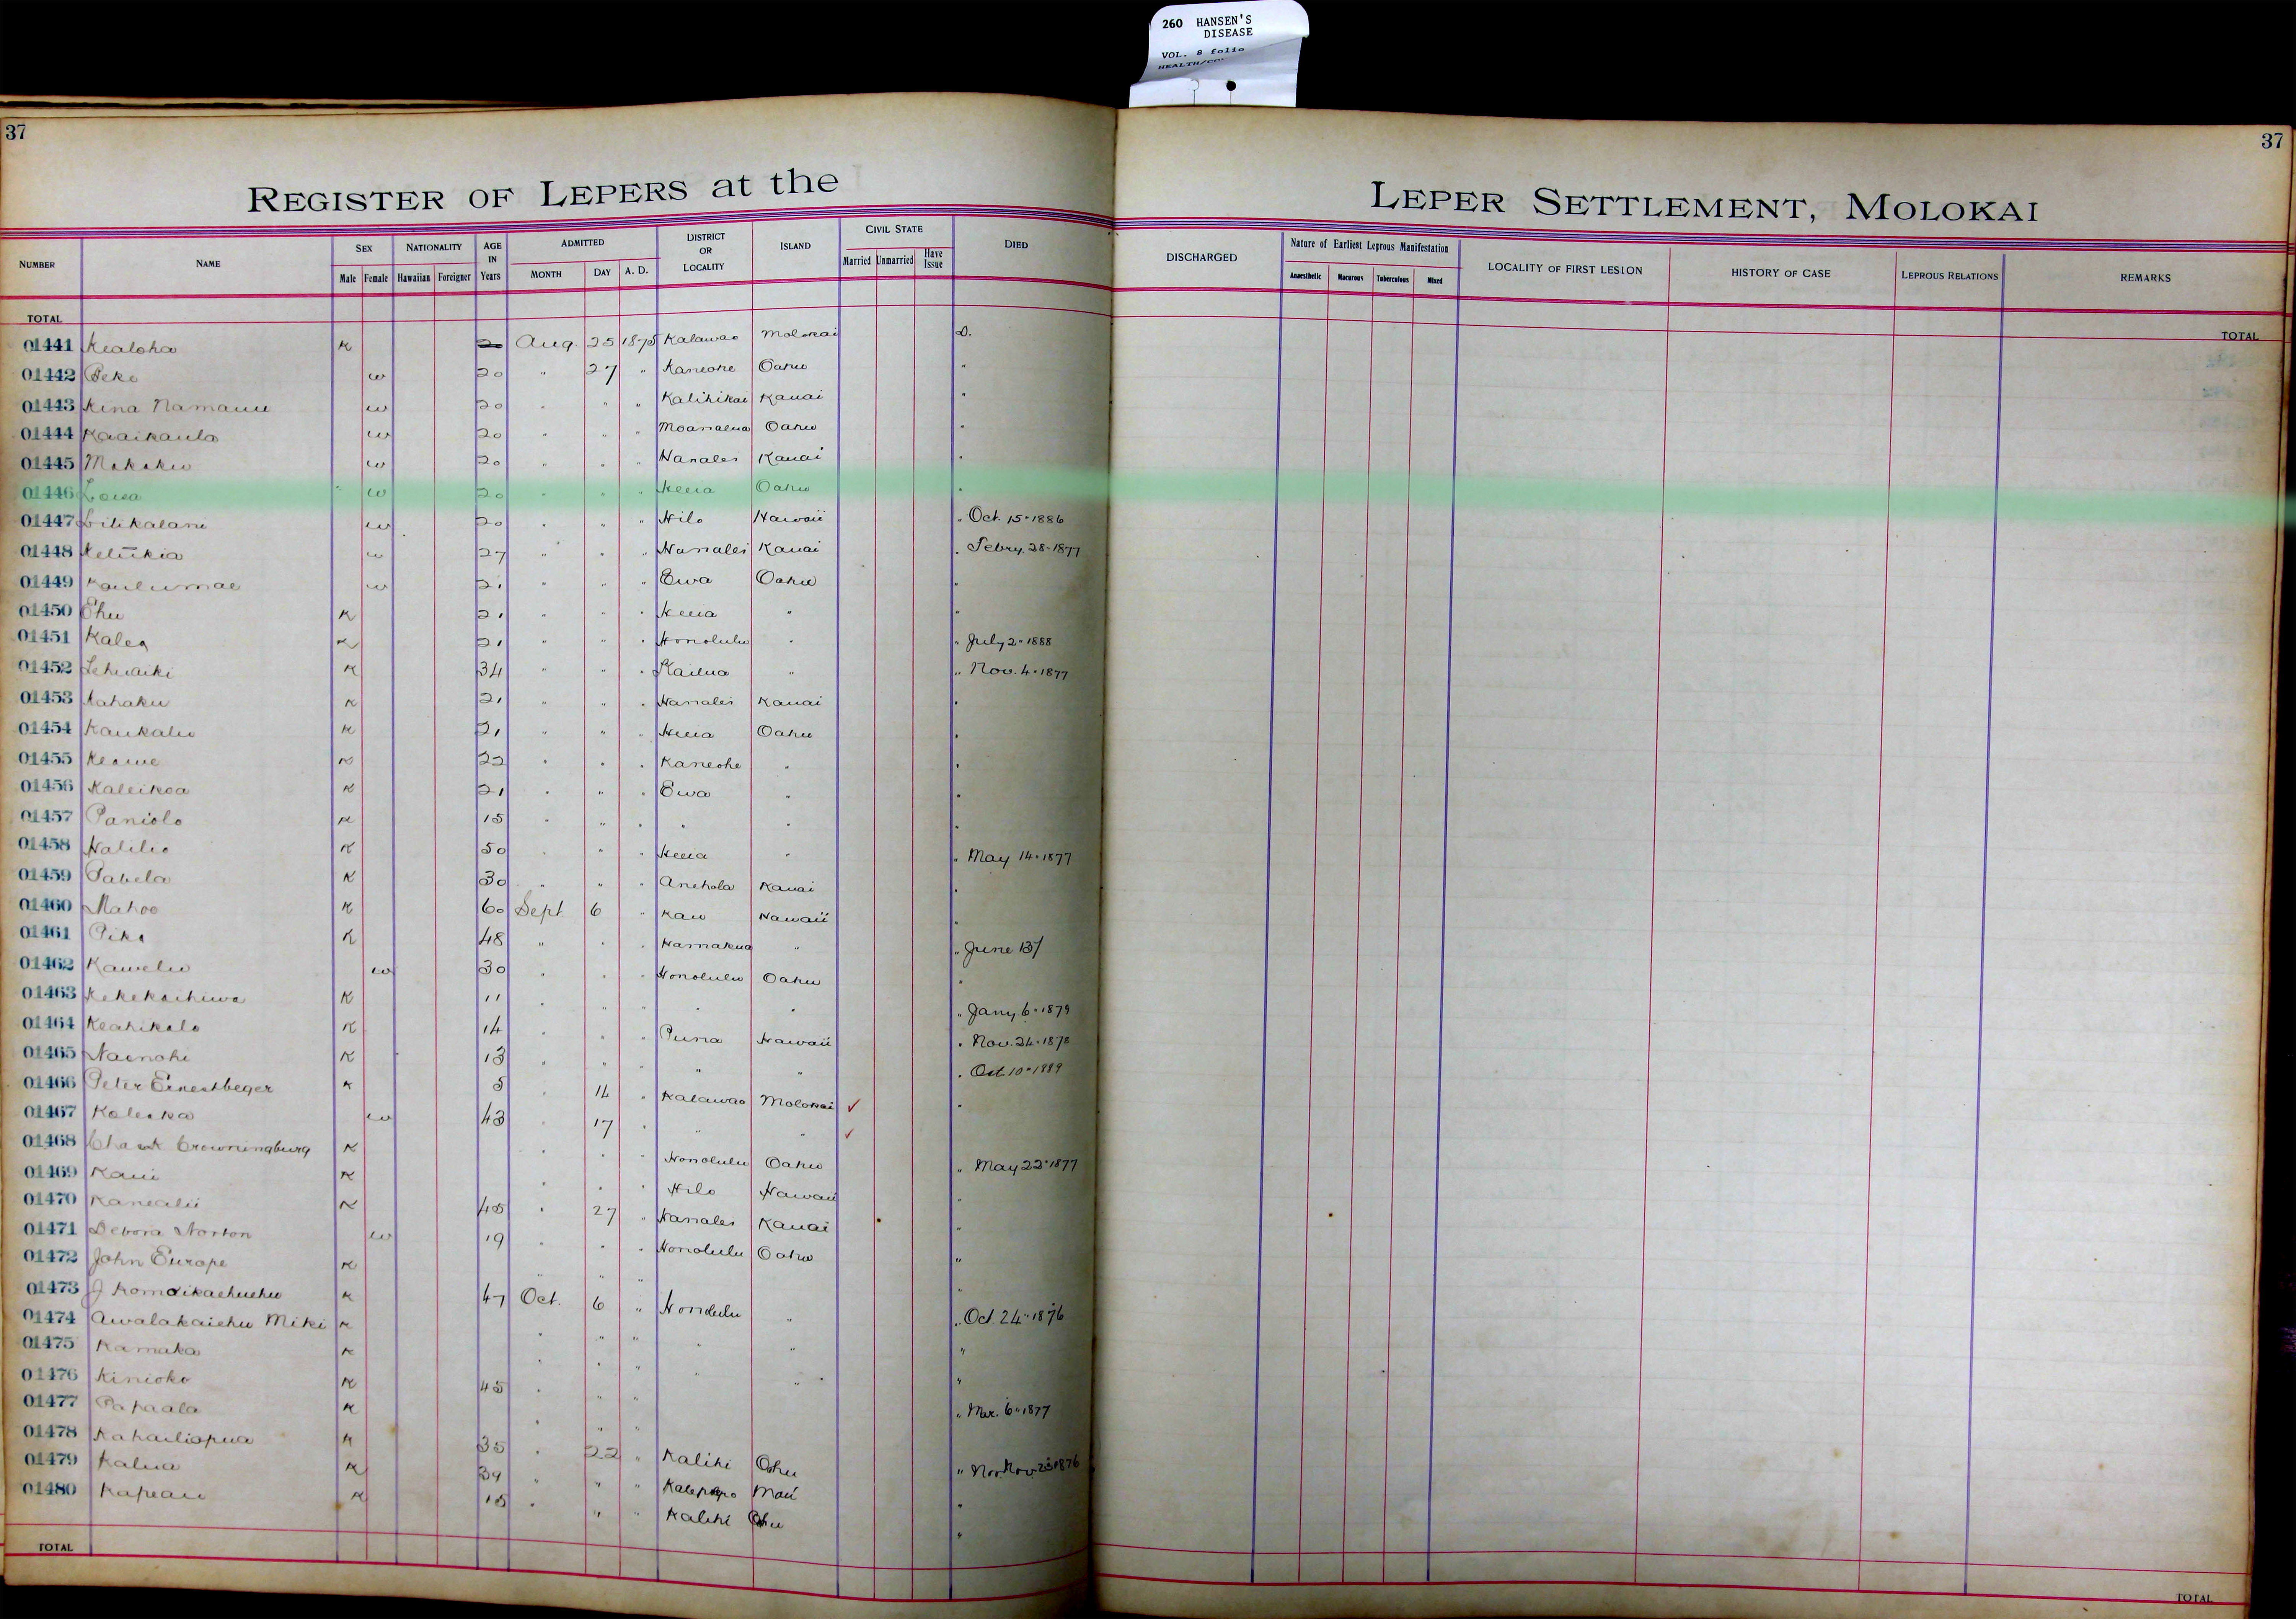 260 HANSEN'S
DISEASE
VOL. 8 folio
37
37
REGISTER OF LEPERS at the
LEPER SETTLEMENT, MOLOKAI
NUMBER NAME SEX Male Female NATIONALITY Hawaiian Foreigner AGE IN Years ADMITTED MONTH DAY A. D. DISTRICT OR LOCALITY ISLAND CIVIL STATE Married Unmarried Have Issue DIED
DISCHARGED Nature of Earliest Leprous Manifestation Anaesthetic Macurous Tuberculous Mixed LOCALITY OF FIRST LESION HISTORY OF CASE LEPROUS RELATIONS REMARKS
TOTAL
TOTAL
01441 Kealoha K 20 Aug. 25 1875 Kalawao Molokai D.
01442 Peke w 20 " 27 " Kaneohe Oahu "
01443 Kina Namauu w 20 " " " Kalihikai Kauai "
01444 Kaaikaula w 20 " " " Moanalua Oahu "
01445 Mokoku w 20 " " " Hanalei Kauai "
01446 Loisa w 20 " " " Heeia Oahu "
01447 Lilikalani w 20 " " " Hilo Hawaii " Oct. 15" 1886
01448 Keliikia w 27 " " " Hanalei Kauai " Febry. 28-1877
01449 Kaulumae w 21 " " " Ewa Oahu "
01450 Ehu K 21 " " " Heeia " "
01451 Kalea K 21 " " " Honolulu " " July 2" 1888
01452 Lehuaiki K 34 " " " Kailua " " Nov. 4" 1877
01453 Kahaku K 21 " " " Hanalei Kauai "
01454 Kaukaliu K 21 " " " Heeia Oahu "
01455 Keawe K 22 " " " Kaneohe " "
01456 Kaleikoa K 21 " " " Ewa " "
01457 Paniolo K 15 " " " " " "
01458 Halilio K 50 " " " Heeia " " May 14" 1877
01459 Pabela K 30 " " " Anehola Kauai "
01460 Mahoe K 60 Sept 6 " Kau Hawaii "
01461 Pika K 48 " " " Hamakua " " June 13/
01462 Kawelu w 30 " " " Honolulu Oahu "
01463 Kekekachiwa K 11 " " " " " " Jany. 6" 1879
01464 Keahikolo K 14 " " " Puna Hawaii " Nov. 24" 1878
01465 Nainohi K 13 " " " " " " Oct 10" 1889
01466 Peter Ernestbeger K 5 " 14 " Kalawao Molokai ✓ "
01467 Koleka w 43 " 17 " " " ✓
01468 Crowningburg K " " " Honolulu Oahu " May 22" 1877
01469 Kaui K " " " Hilo Hawaii "
01470 Kanealii K 45 " 27 " Hanalei Kauai "
01471 Debora Norton w 19 " " " Honolulu Oahu "
01472 John Europe K " " " "
01473 J Komoikaehuehu K 47 Oct. 6 " Honolulu " " Oct. 24" 1876
01474 Awalakaiehu Miki K " " " " " "
01475 Kamaka K " " " " " "
01476 Kinioko K 45 " " " " Mar. 6" 1877
01477 Papaala K " " "
01478 Kahailiopua K 35 " 22 " Kalihi Oahu " Nov. 23 1876
01479 Kalua K 39 " " " Kalepopo Maui "
01480 Kapeau K 15 " " " Kalihi Oahu "
TOTAL
TOTAL